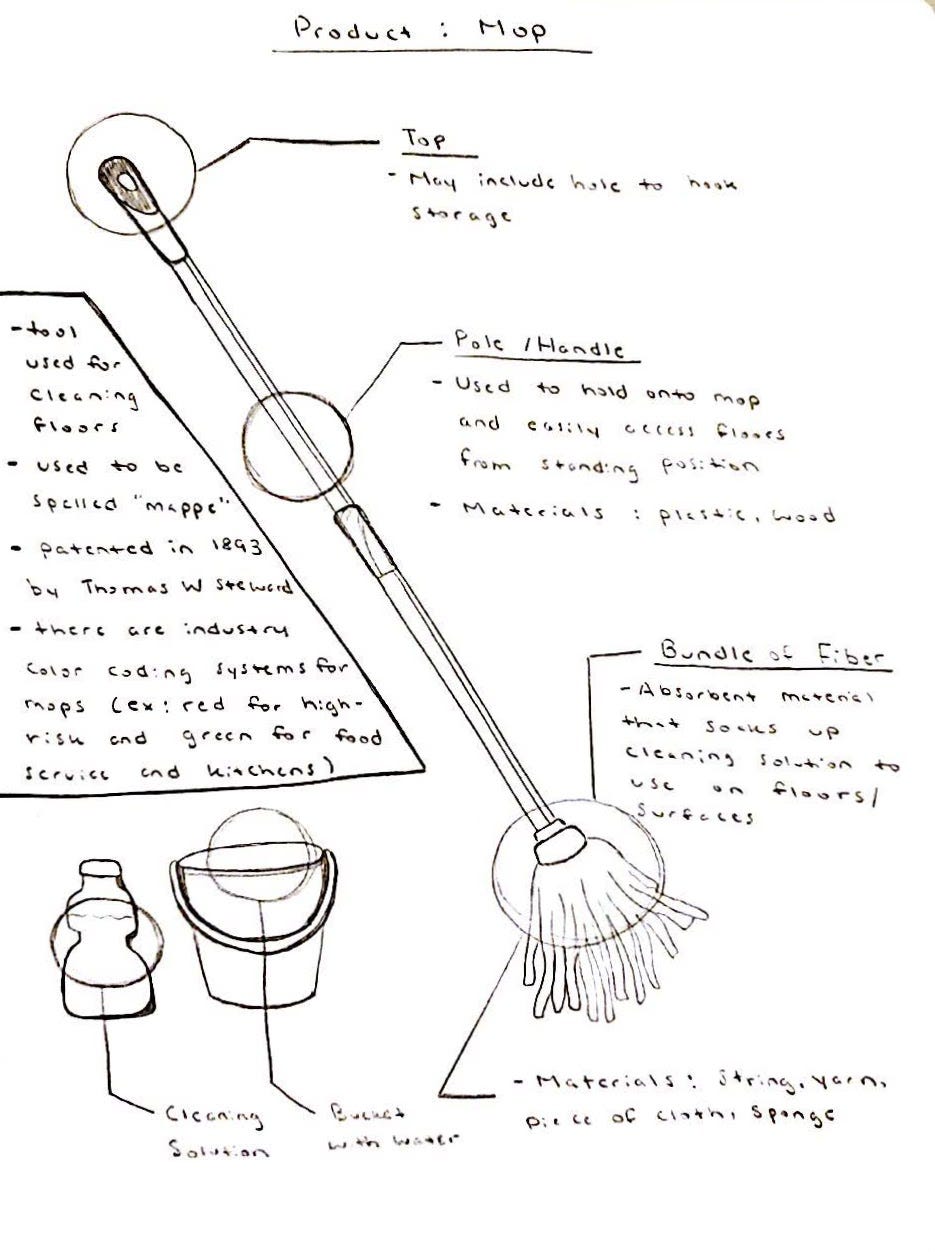 Product : Mop
Top
- May include hole to hook
storage
- tool
used for
cleaning
floors
- used to be
spelled "mappe"
- patented in 1893
by Thomas W Steward
- there are industry
color coding systems for
mops (ex: red for high-
risk and green for food
service and kitchens)
Pole / Handle
- Used to hold onto mop
and easily access floors
from standing position
- Materials : plastic, wood
Bundle of Fiber
- Absorbent material
that soaks up
cleaning solution to
use on floors/
surfaces
- Materials: string, yarn,
piece of cloth, sponge
Cleaning
Solution
Bucket
with water